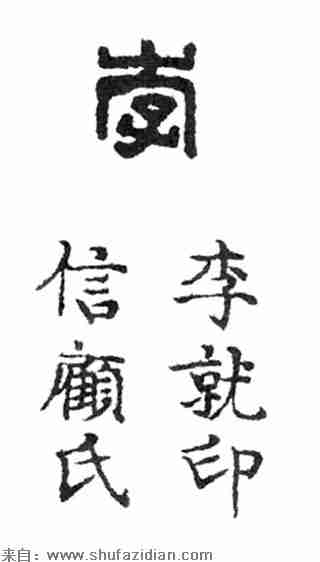 李
李就印
信顧氏
来自：www.shufazidian.com